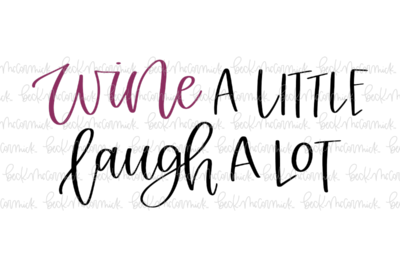 wine A LITTLE
laugh A LOT